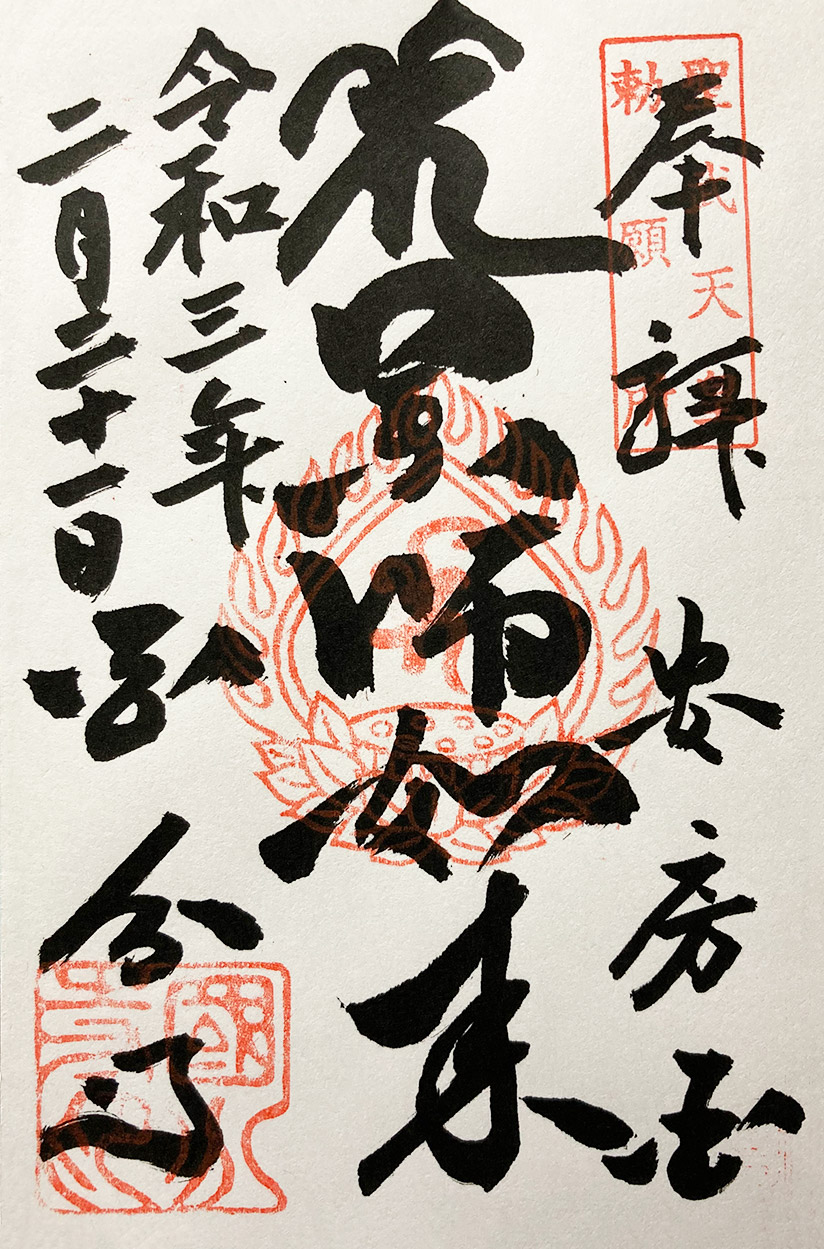 聖武天皇
勅願所
奉拝 安房国
薬師如来
令和三年
二月二十一日
国分寺